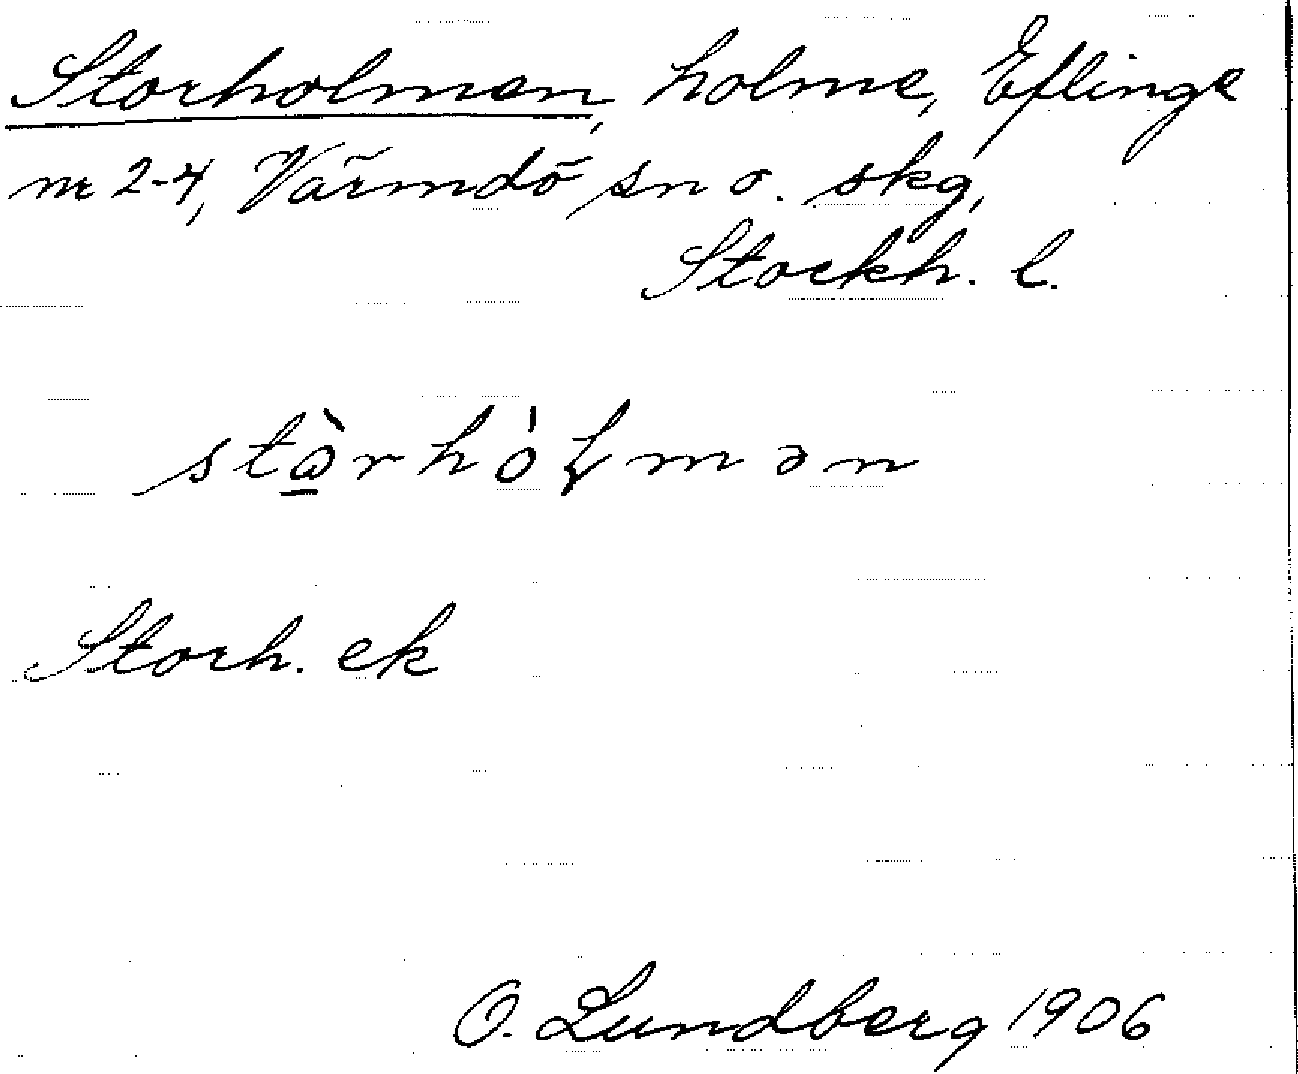 Storholmen, holme, Eflinge
nr 2-4, Värmdö sn o. skg,
Stockh. l.
stὼ̲rhólmən
Storh. ek
O. Lundberg 1906